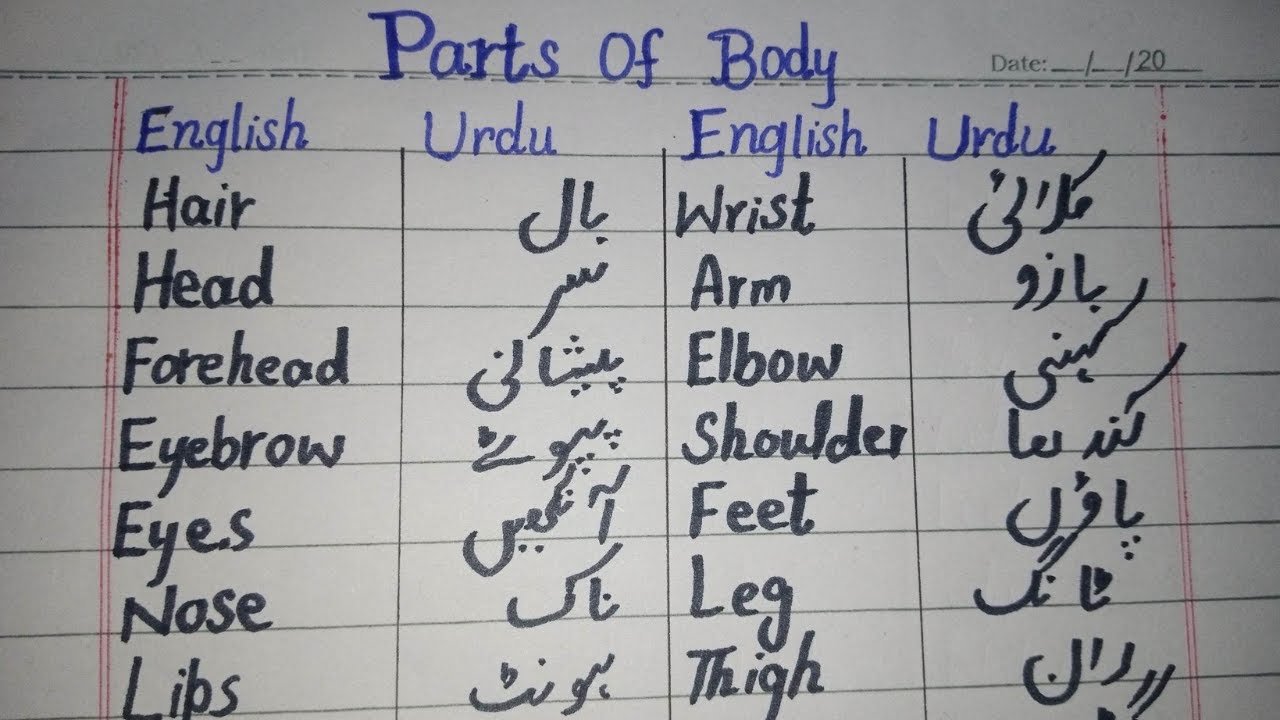 Parts Of Body
Date: __/__/20__
English Urdu English Urdu
Hair بال Wrist کلائی
Head سر Arm بازو
Forehead پیشانی Elbow کہنی
Eyebrow پپوٹے Shoulder کندھا
Eyes آنکھیں Feet پاؤں
Nose ناک Leg ٹانگ
Lips ہونٹ Thigh ران